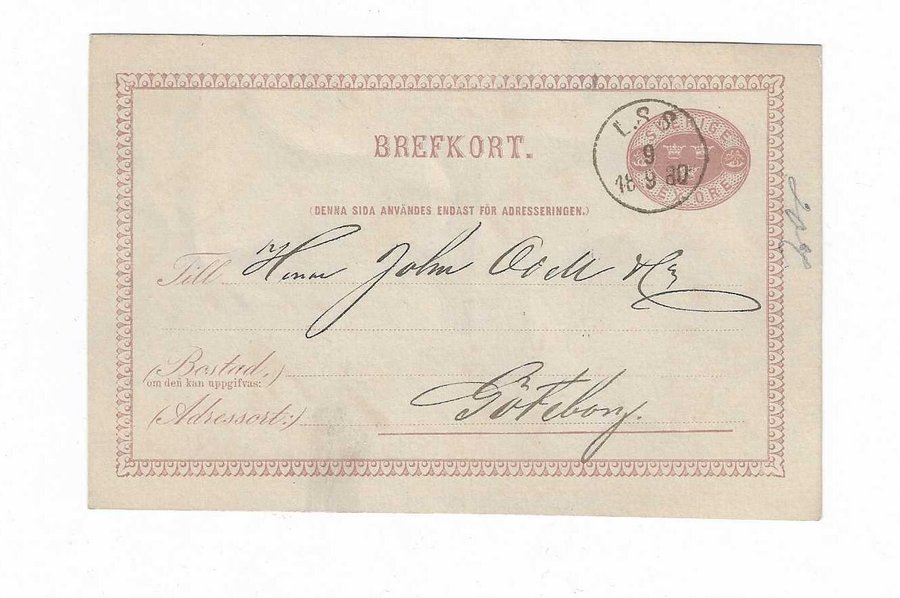 BREFKORT.
SVERIGE
ÖRE
L.S.P.
9
18 9 80
(DENNA SIDA ANVÄNDES ENDAST FÖR ADRESSERINGEN.)
Till Herrar John Odell & Co
(Bostad,)
om den kan uppgifvas:
(Adressort:) Göteborg.